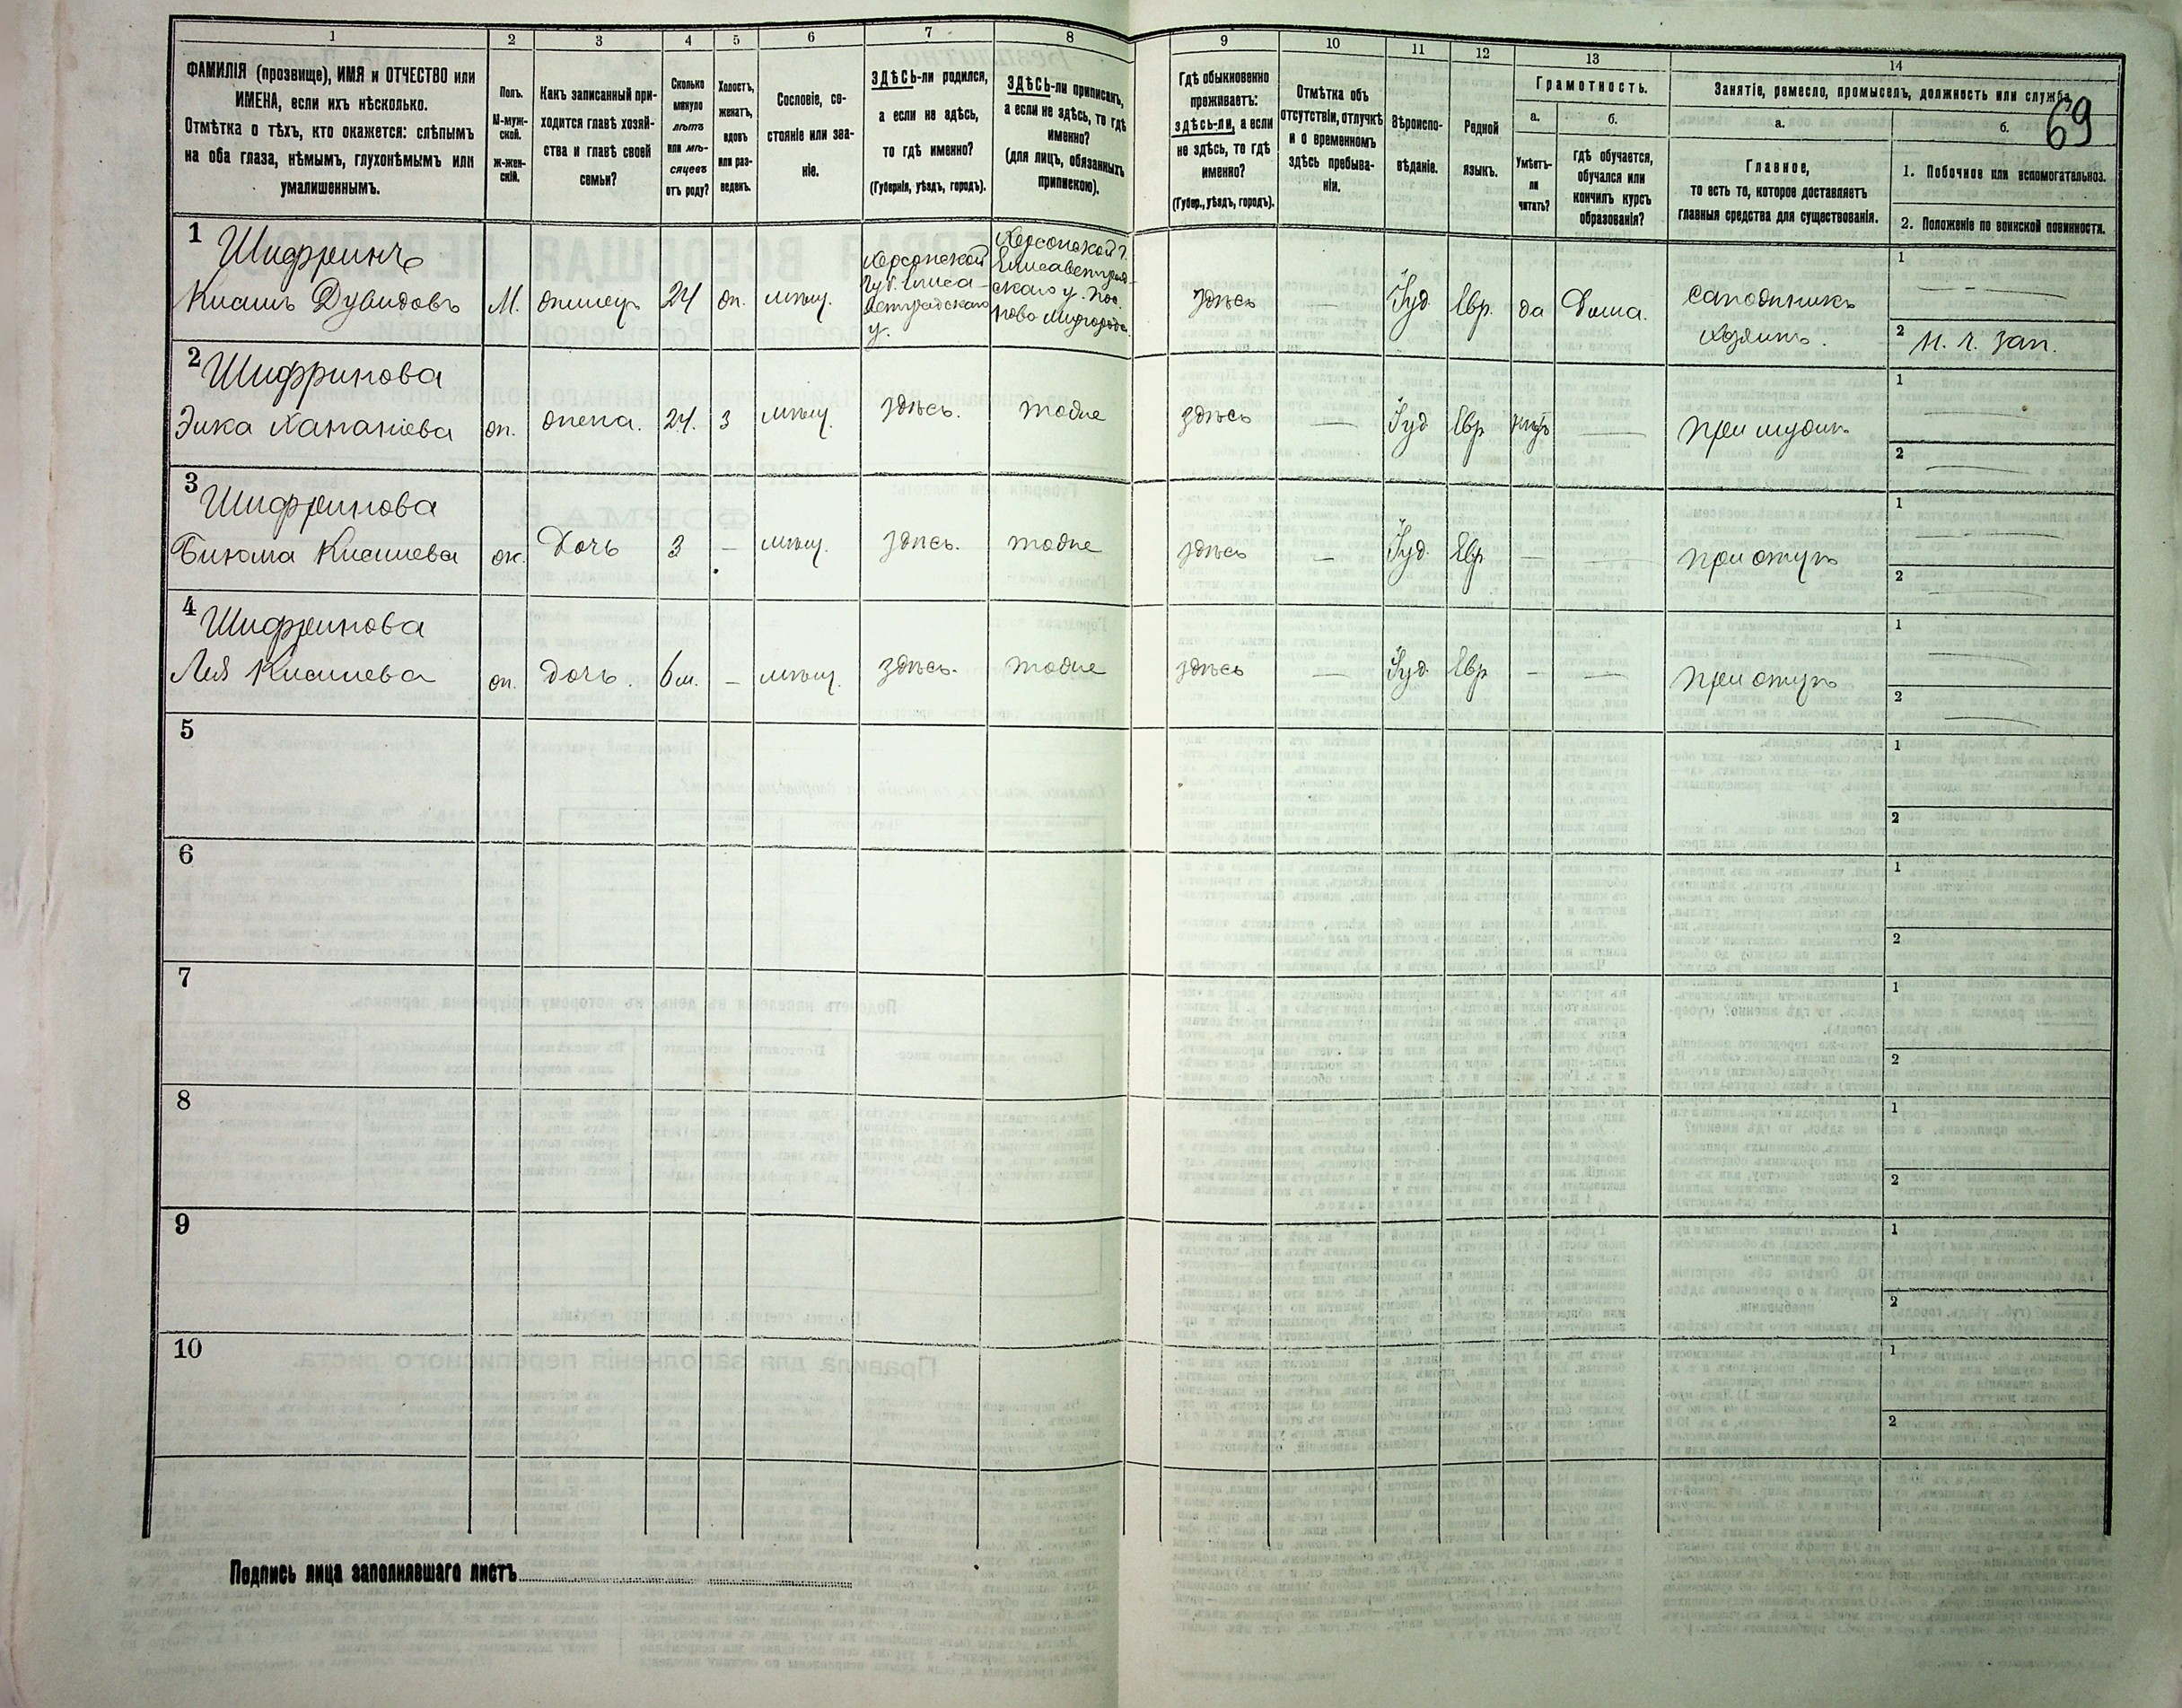 1 2 3 4 5 6 7 8 9 10 11 12 13 14
ФАМИЛІЯ (прозвище), ИМЯ и ОТЧЕСТВО или
ИМЕНА, если ихъ нѣсколько.
Отмѣтка о тѣхъ, кто окажется: слѣпымъ
на оба глаза, нѣмымъ, глухонѣмымъ или
умалишеннымъ.
Полъ.
М-муж-
ской.
Ж-жен-
скій.
Какъ записанный при-
ходится главѣ хозяй-
ства и главѣ своей
семьи?
Сколько
минуло
лѣтъ
или мѣ-
сяцевъ
отъ роду?
Холостъ,
женатъ,
вдовъ
или раз-
веденъ.
Сословіе, со-
стояніе или зва-
ніе.
ЗДѢСЬ-ли родился,
а если не здѣсь,
то гдѣ именно?
(Губернія, уѣздъ, городъ).
ЗДѢСЬ-ли приписанъ,
а если не здѣсь, то гдѣ
именно?
(для лицъ, обязанныхъ
припискою).
Гдѣ обыкновенно
проживаетъ:
здѣсь-ли, а если
не здѣсь, то гдѣ
именно?
(Губер., уѣздъ, городъ).
Отмѣтка объ
отсутствіи, отлучкѣ
и о временномъ
здѣсь пребыва-
ніи.
Вѣроиспо-
вѣданіе.
Родной
языкъ.
Грамотность.
а.
Умѣетъ-
ли
читать?
б.
гдѣ обучается,
обучался или
кончилъ курсъ
образованія?
Занятіе, ремесло, промыселъ, должность или служба.
а.
Главное,
то есть то, которое доставляетъ
главныя средства для существованія.
б.
69
1. Побочное или вспомогательное.
2. Положеніе по воинской повинности.
1 Шифринъ
Кисиль Дувидовъ
М.
24
мѣщ.
Херсонской
Губ. Елиса-
ветградскаго
у.
Херсонской г.
Елисаветград-
скаго у. пос.
Ново миргорода
здѣсь
—
Іуд
Евр.
да
Дома.
сапожникъ
хозяинъ.
1 — —
2 н. г. зап.
2 Шифринова
Эйка Хананіева
ж.
жена.
24.
З
мѣщ.
здѣсь.
тоже
здѣсь
—
Іуд
Евр
нѣтъ
—
при мужѣ
1 —
2 —
3 Шифринова
Кисилева
ж.
Дочь
3
—
мѣщ.
здѣсь.
тоже
здѣсь
—
Іуд.
Евр
—
—
при отцѣ
1 —
2 —
4 Шифринова
Лея Кисилева
ж.
дочь.
6 м.
—
мѣщ.
здѣсь.
тоже
здѣсь
—
Іуд.
Евр
—
—
при отцѣ
1 —
2 —
5
1
2
6
1
2
7
1
2
8
1
2
9
1
2
10
1
2
Подпись лица заполнявшаго листъ